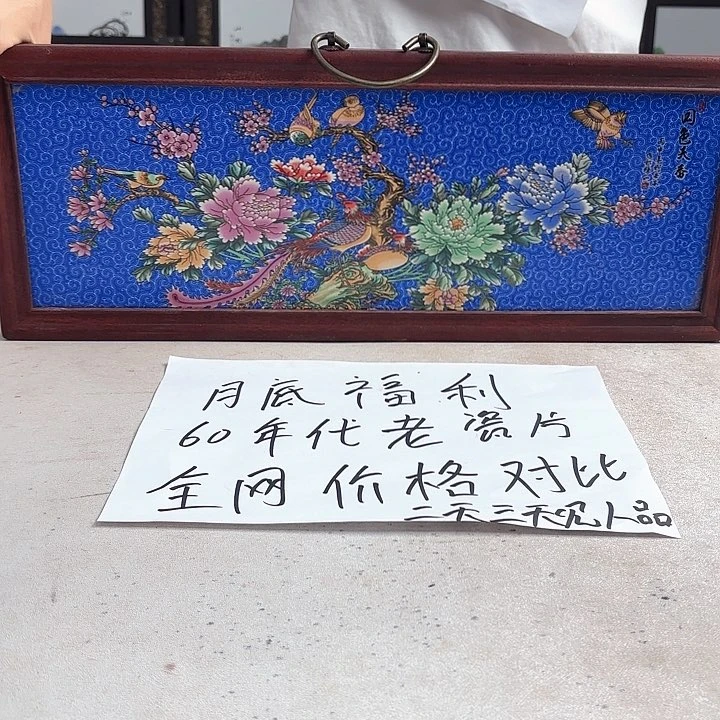 国色天香
月底福利
60年代老瓷片
全网价格对比
二天三天见人品